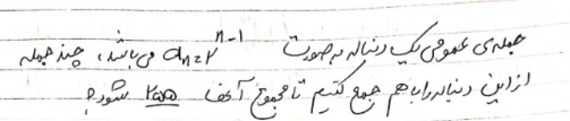 جمله‌ی عمومی یک دنباله به صورت aₙ=۲ⁿ⁻¹ می باشد، چند جمله
از این دنباله را با هم جمع کنیم تا مجموع آنها ۲۵۵ شود؟